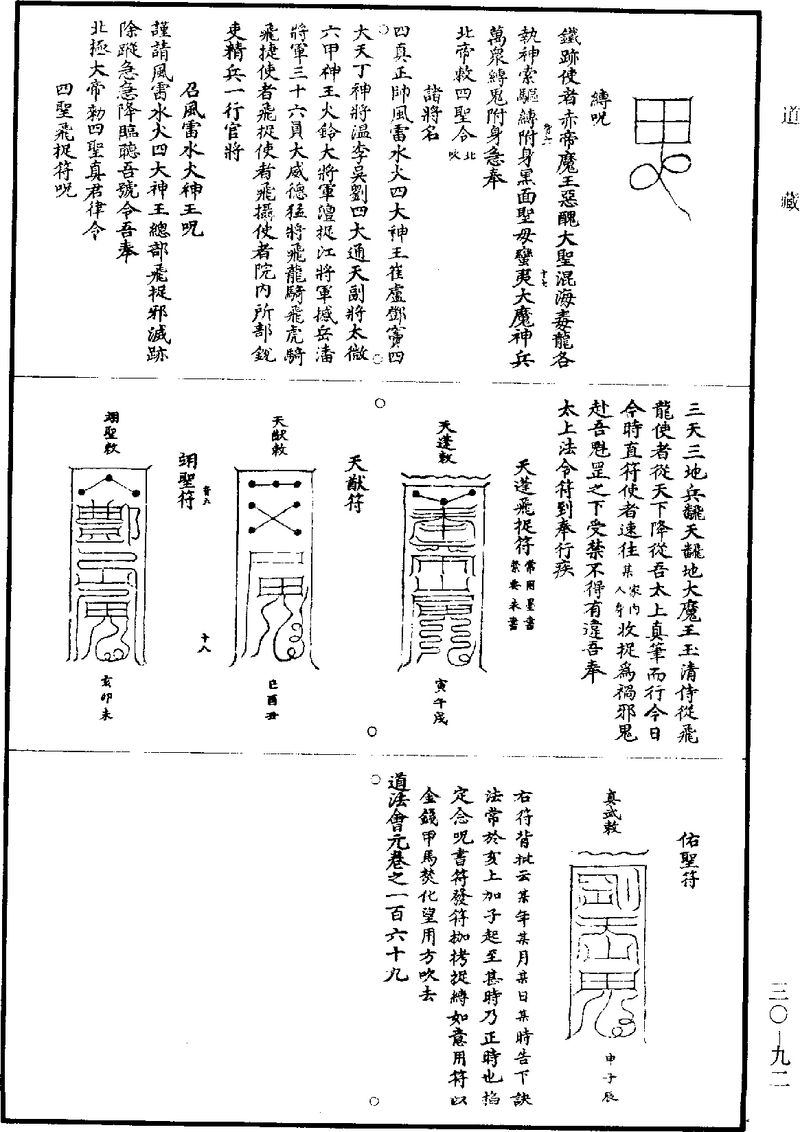 道藏
縛呪
鐵跡使者赤帝魔王惡醜大聖混海毒龍各
執神索驅縛附身黑面聖母蠻夷大魔神兵
萬衆縛鬼附身急奉
北帝敕四聖令 北吹
諸將名
四真正帥風雷水火四大神王崔盧鄧竇四
大天丁神將溫李吳劉四大通天副將太微
六甲神王火鈴大將軍澶捉江將軍撼岳潘
將軍三十六員大威德猛將飛龍騎飛虎騎
飛捷使者飛捉使者飛攝使者院內所部銳
吏精兵一行官將
召風雷水火神王呪
謹請風雷水火四大神王總部飛捉邪滅跡
除蹤急急降臨聽吾號令吾奉
北極大帝勑四聖真君律令
四聖飛捉符呪
三天三地兵翻天翻地大魔王玉清侍從飛
龍使者從天下降從吾太上真筆而行今日
今時直符使者速往某家內人身收捉為禍邪鬼
赴吾魁罡之下受禁不得有違吾奉
太上法令符到奉行疾
天蓬飛捉符 常用墨書禁要朱書
天蓬敕
寅午戌
天猷符
天猷敕
巳酉丑
翊聖符
十八
翊聖敕
亥卯未
佑聖符
真武敕
申子辰
右符背批云某年某月某日某時告下訣
法常於亥上加子起至甚時乃正時也掐
定念呪書符發符枷拷捉縛如意用符以
金錢甲馬焚化望用方吹去
道法會元卷之一百六十九
三〇—九二